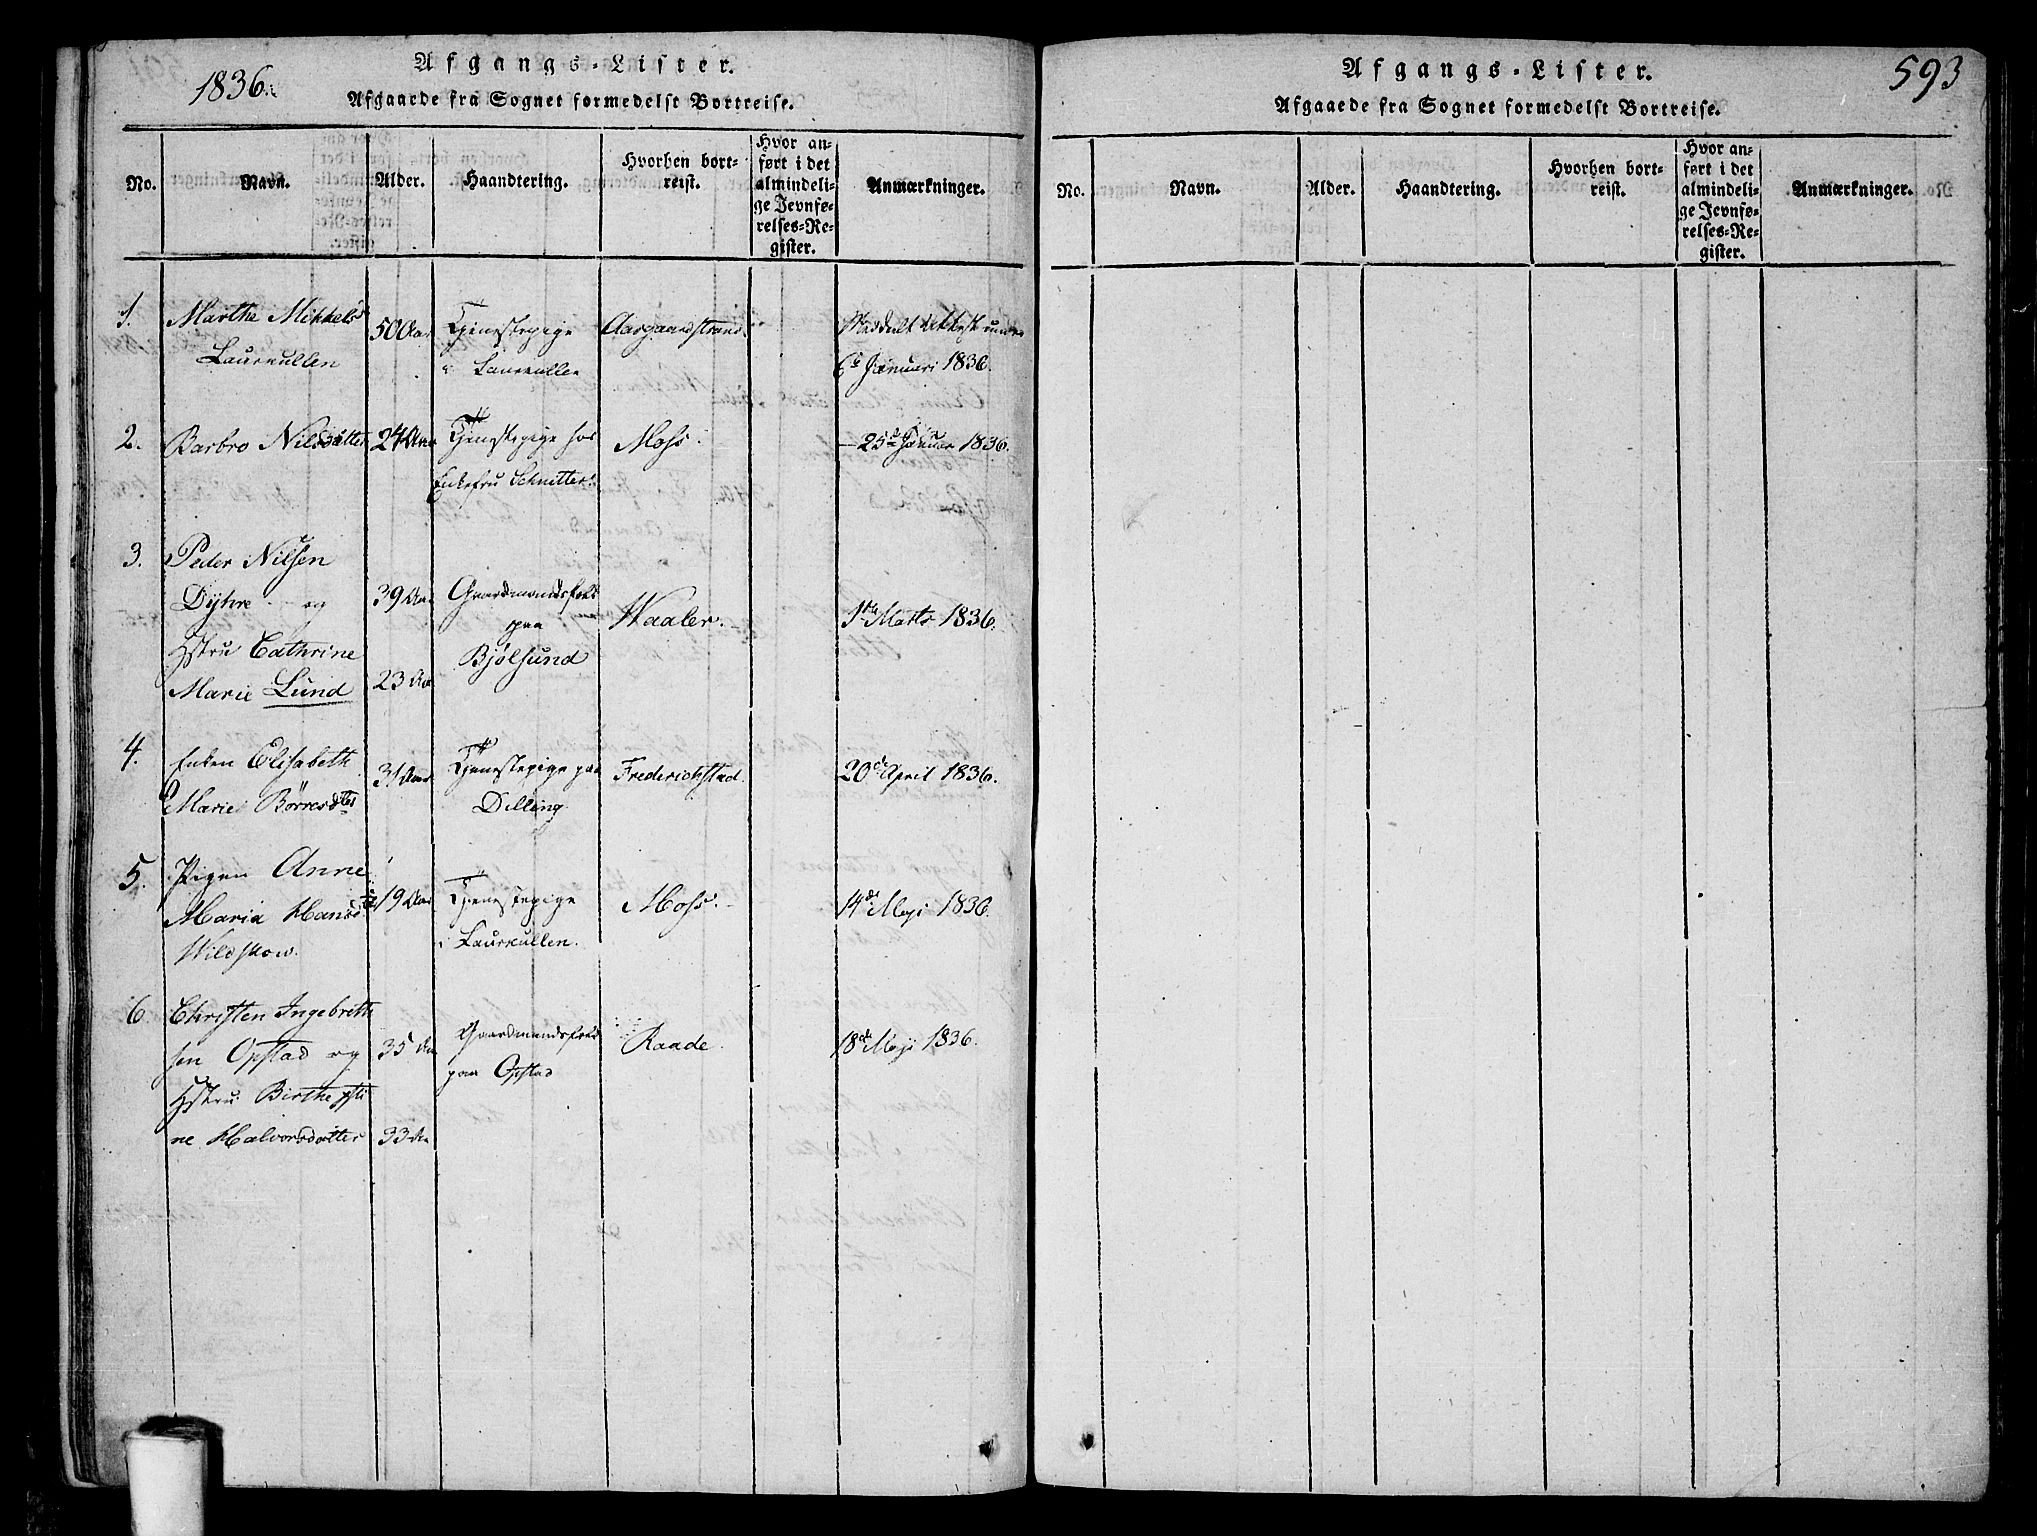 1836.
Afgangs-Lister.
Afgaaede fra Sognet formedelst Bortreise.
No. Navn. Alder. Haandtering. Hvorhen bortreist. Hvor anført i det almindelige Jevnførelses-Register. Anmærkninger.
1. Marthe Mikkelsd 50 Aar Tjenestepige Aargaardstrand
Laurkullen i Laurkullen 6 Januari 1836.
2. Barbro Nilsdatter 24 Aar Tjenestepige hos Moss. 25d Januar 1836.
Enkefru Schnitter
3. Peder Nilsen
Dyhre og 39 Aar Gaardmandsfolk Waaler. 1ste Marts 1836.
Hstru Cathrine paa
Marie Lund 23 Aar Bjølsund
4. Enken Elisabeth 31 Aar Tjenestepige paa Frederichstad. 20de April 1836.
Marie Børresdtr Dilling
5. Pigen Anne
Maria Hansd 19 Aar Tjenestepige Moss. 14de Maji 1836.
Wildskow. i Laurkullen.
6 Christen Ingebreth
sen Opstad og 35 Aar Gaardmandsfolk Raade. 18de Maji 1836.
Hstru Birthe paa Opstad
ne Halvorsdatter 33 Aar
593
Afgangs-Lister.
Afgaaede fra Sognet formedelst Bortreise.
No. Navn. Alder. Haandtering. Hvorhen bortreist. Hvor anført i det almindelige Jevnførelses-Register. Anmærkninger.